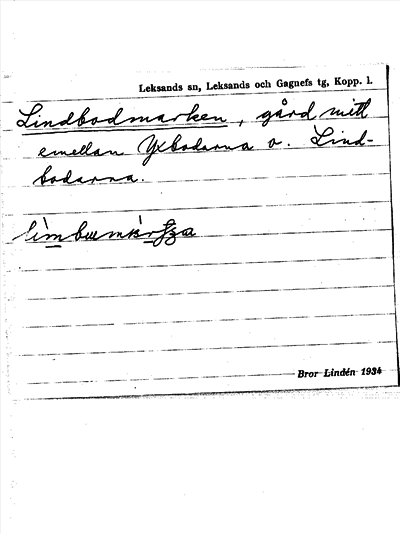 Leksands sn, Leksands och Gagnefs tg, Kopp. l.
Lindbodmarken, gård mitt
emellan Yxbodarna o. Lind-
bodarna.
Bror Lindén 1934